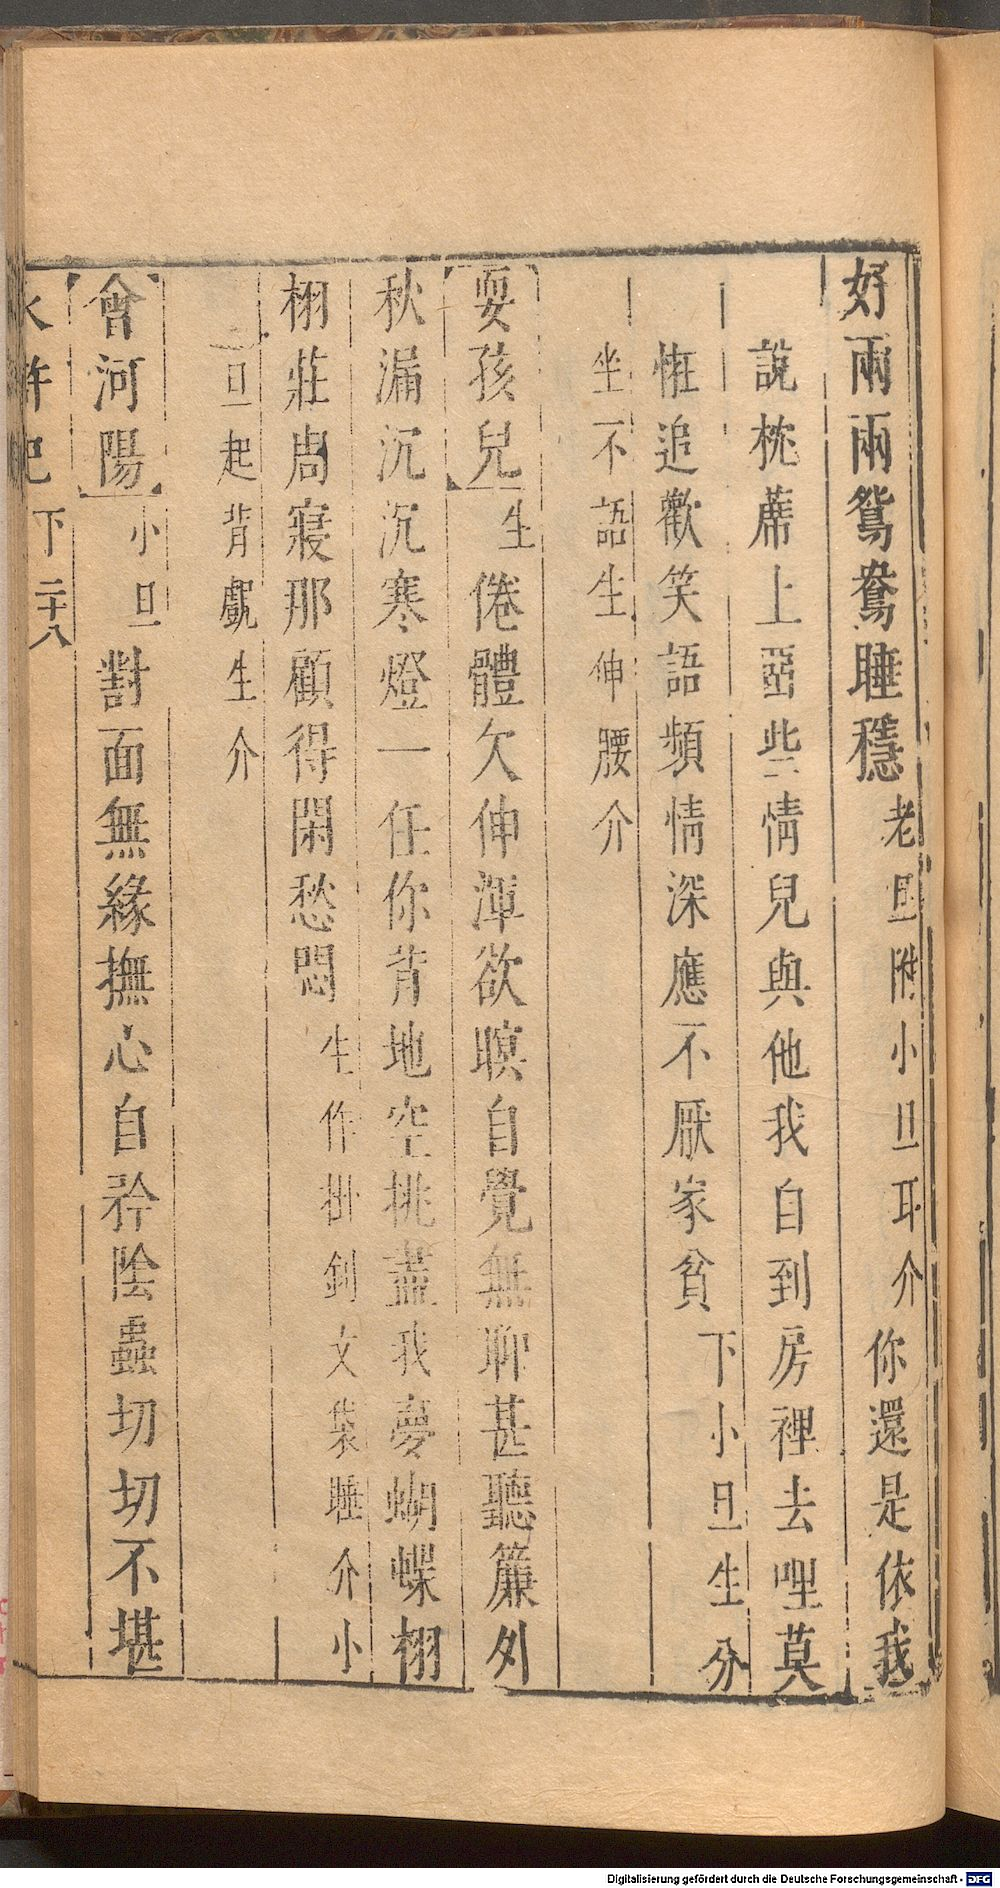 好兩兩鴛鴦睡穩老旦附小旦耳介你還是依我
說枕蓆上囫些情兒與他我自到房裡去哩莫
恠追歡笑語頻情深應不厭家貧下小旦生分
坐不語生伸腰介
【耍孩兒】生倦體欠伸渾欲瞑自覺無聊甚聽簾外
秋漏沉沉寒燈一任你背地空挑盡我夢蝴蝶栩
栩莊周寢那顧得閑愁悶生作掛劍文袋睡介小
旦起背覷生介
【會河陽】小旦對面無緣撫心自矜陰蟲切切不堪
水滸記 下 二十八
Digitalisierung gefördert durch die Deutsche Forschungsgemeinschaft - DFG